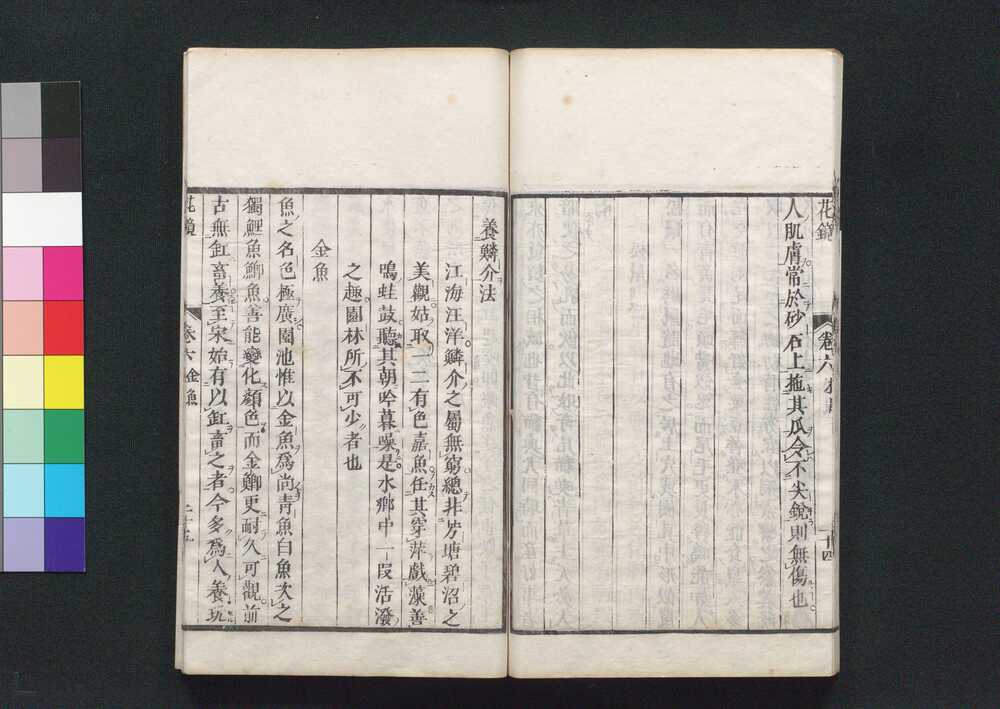 花鏡
卷六
二十四
人肌膚常於砂石上拖其爪令不尖銳則無傷也
養鱗介法
江海汪洋鱗介之屬無窮總非芳塘碧沼之
美觀姑取一二有色嘉魚任其穿萍戲藻善
鳴蛙鼓聽其朝吟暮噪是水鄉中一段活潑
之趣園林所不可少者也
金魚
魚之名色極廣園池惟以金魚爲尚青魚白魚次之
獨鯉魚鯽魚善能變化顏色而金鯽更耐久可觀前
古無缸畜養至宋始有以缸畜之者今多爲人養玩
花鏡
卷六 金魚
二十五